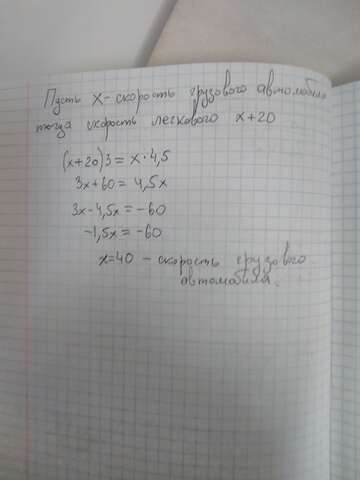 Пусть x - скорость грузового автомобиля
тогда скорость легкового x+20
(x+20)3 = x·4,5
3x+60 = 4,5x
3x-4,5x = -60
-1,5x = -60
x=40 - скорость грузового
автомобиля.